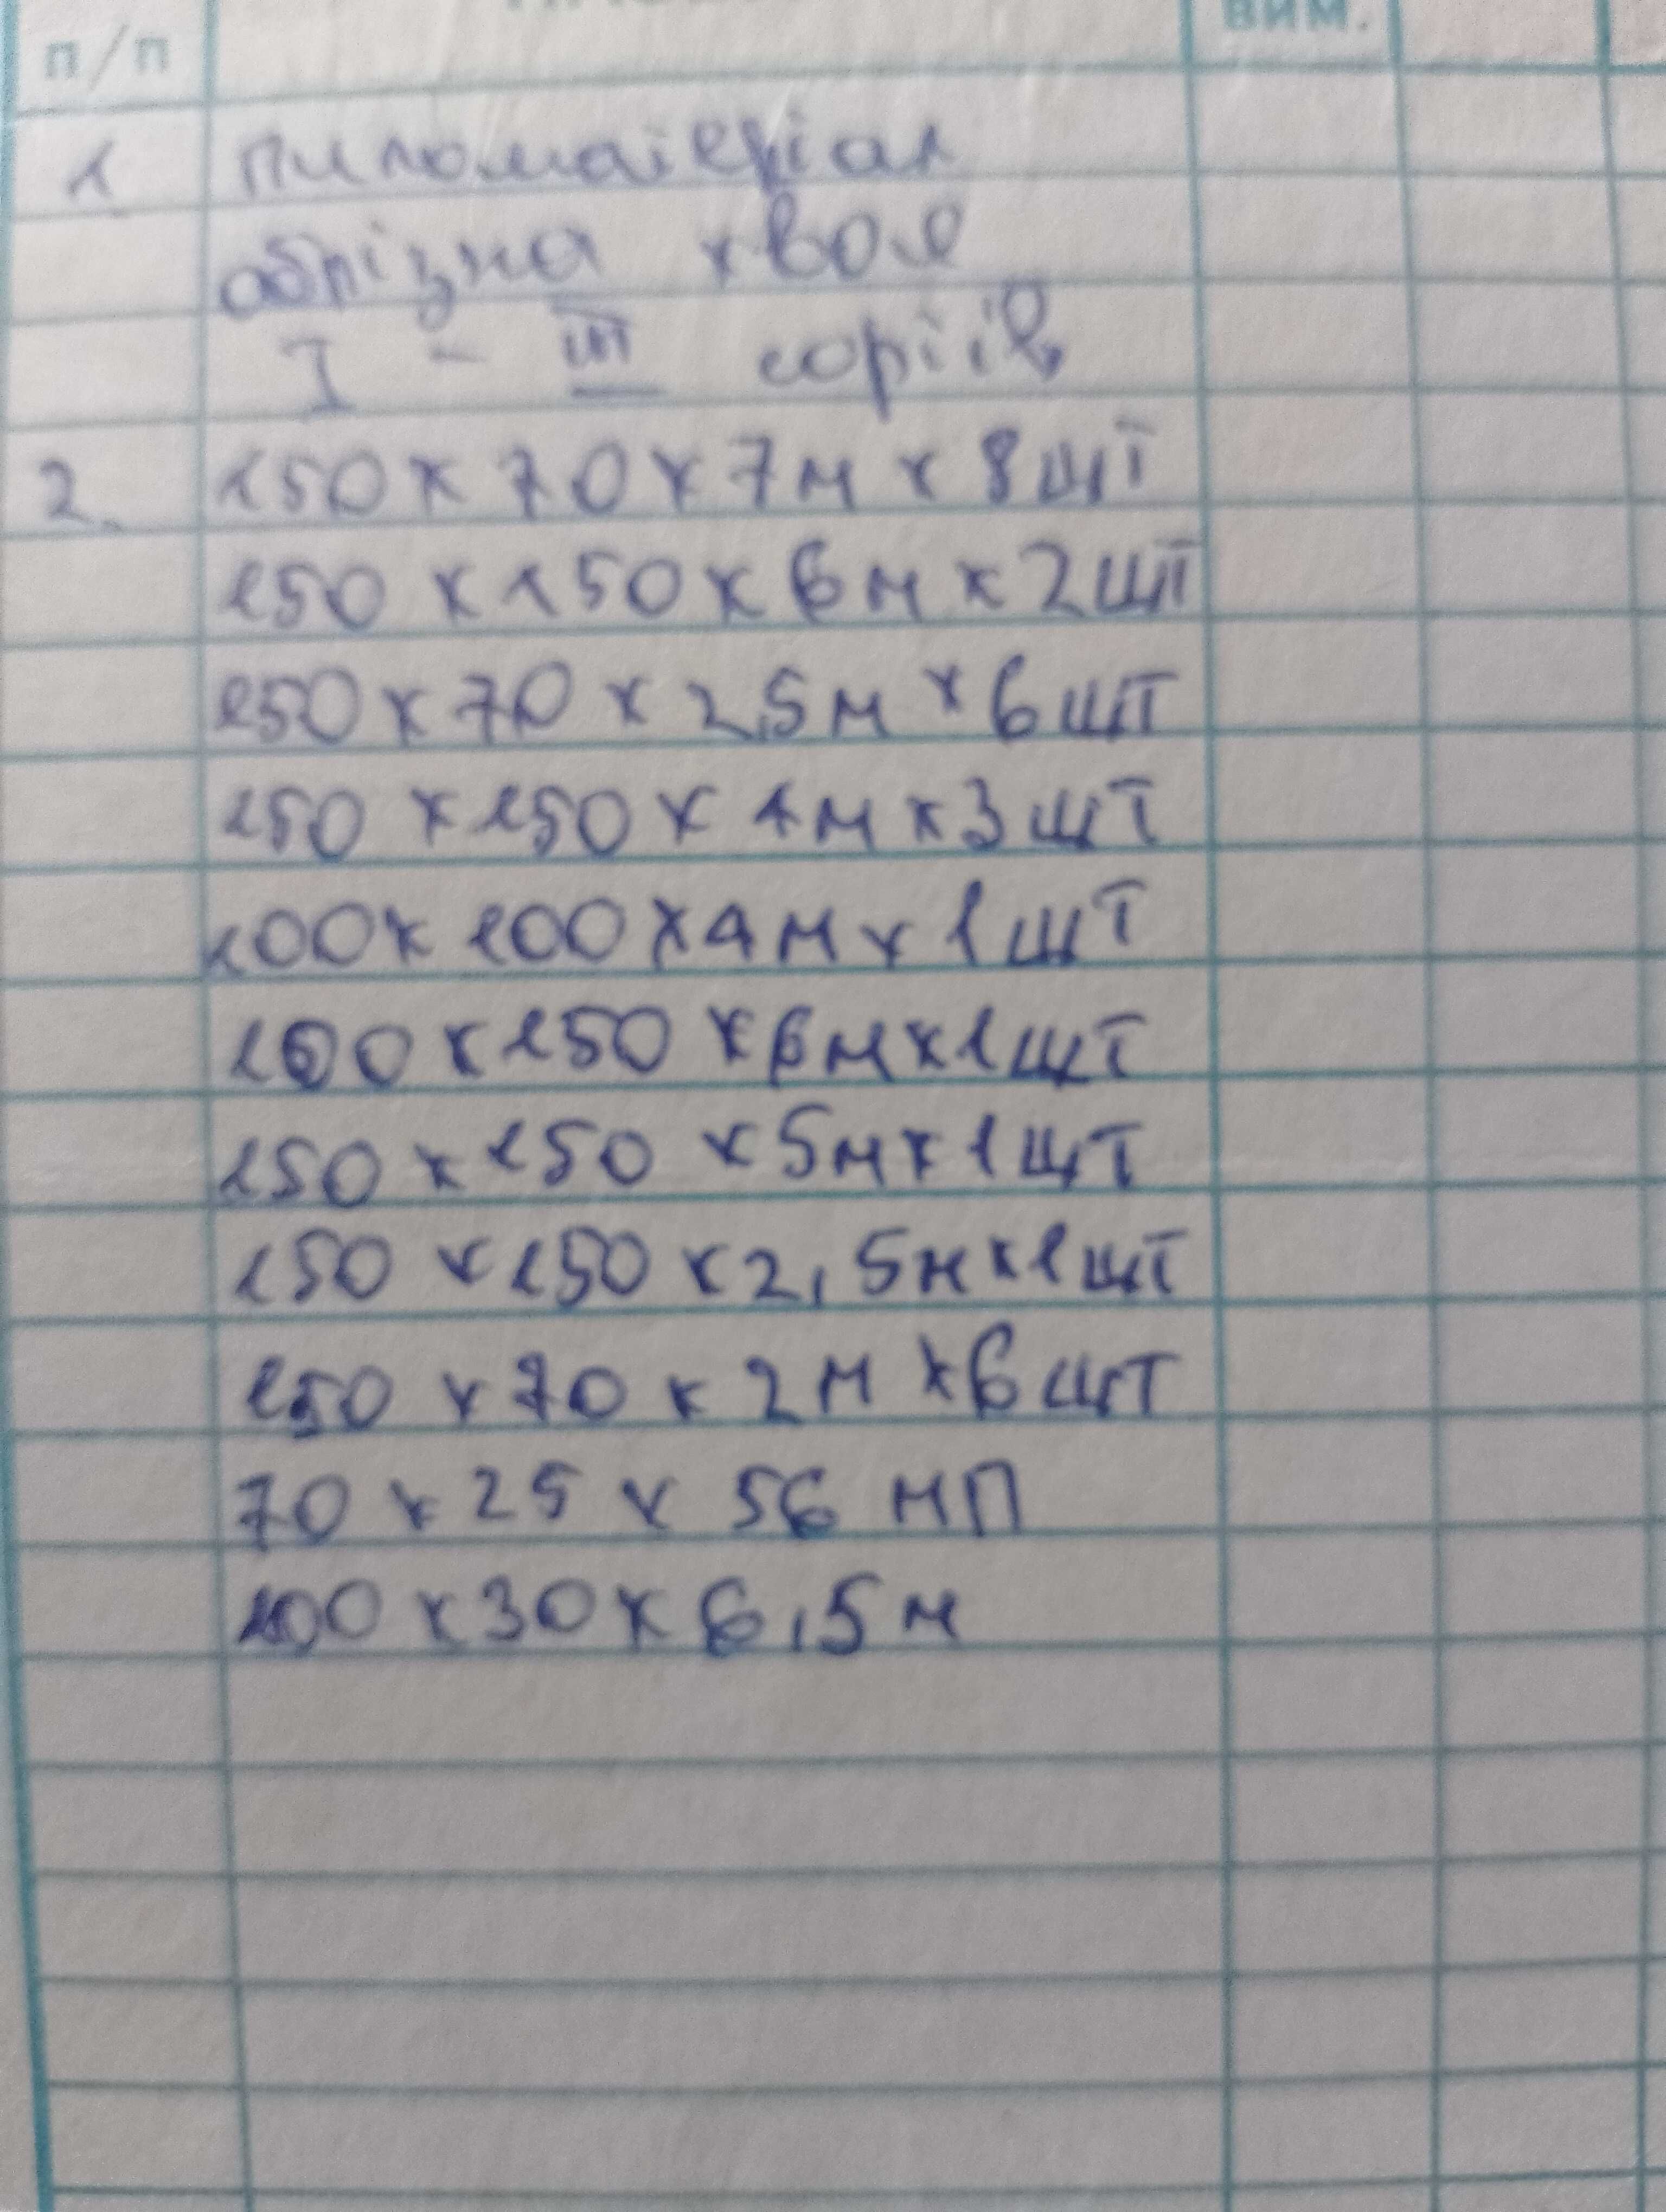 п/п
вим.
1 пиломатеріал
обрізна хвоя
I - III сортів
2. 150 х 70 х 7м х 8шт
150 х 150 х 6м х 2шт
150 х 70 х 2,5м х 6шт
150 х 150 х 4м х 3шт
100х 100 х4м х 1шт
100 х 150 х 6м х 1шт
150 х 150 х 5м х 1шт
150 х 150 х 2,5м х 1шт
150 х 70 х 2м х 6шт
70 х 25 х 56 мп
100 х 30 х 6,5м